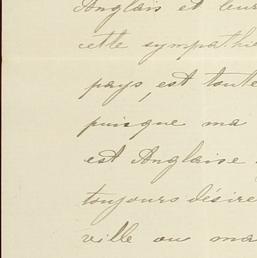 Anglais et leur
cette sympathie
pays, est toute
puisque ma
est Anglaise
toujours désiré
ville où ma